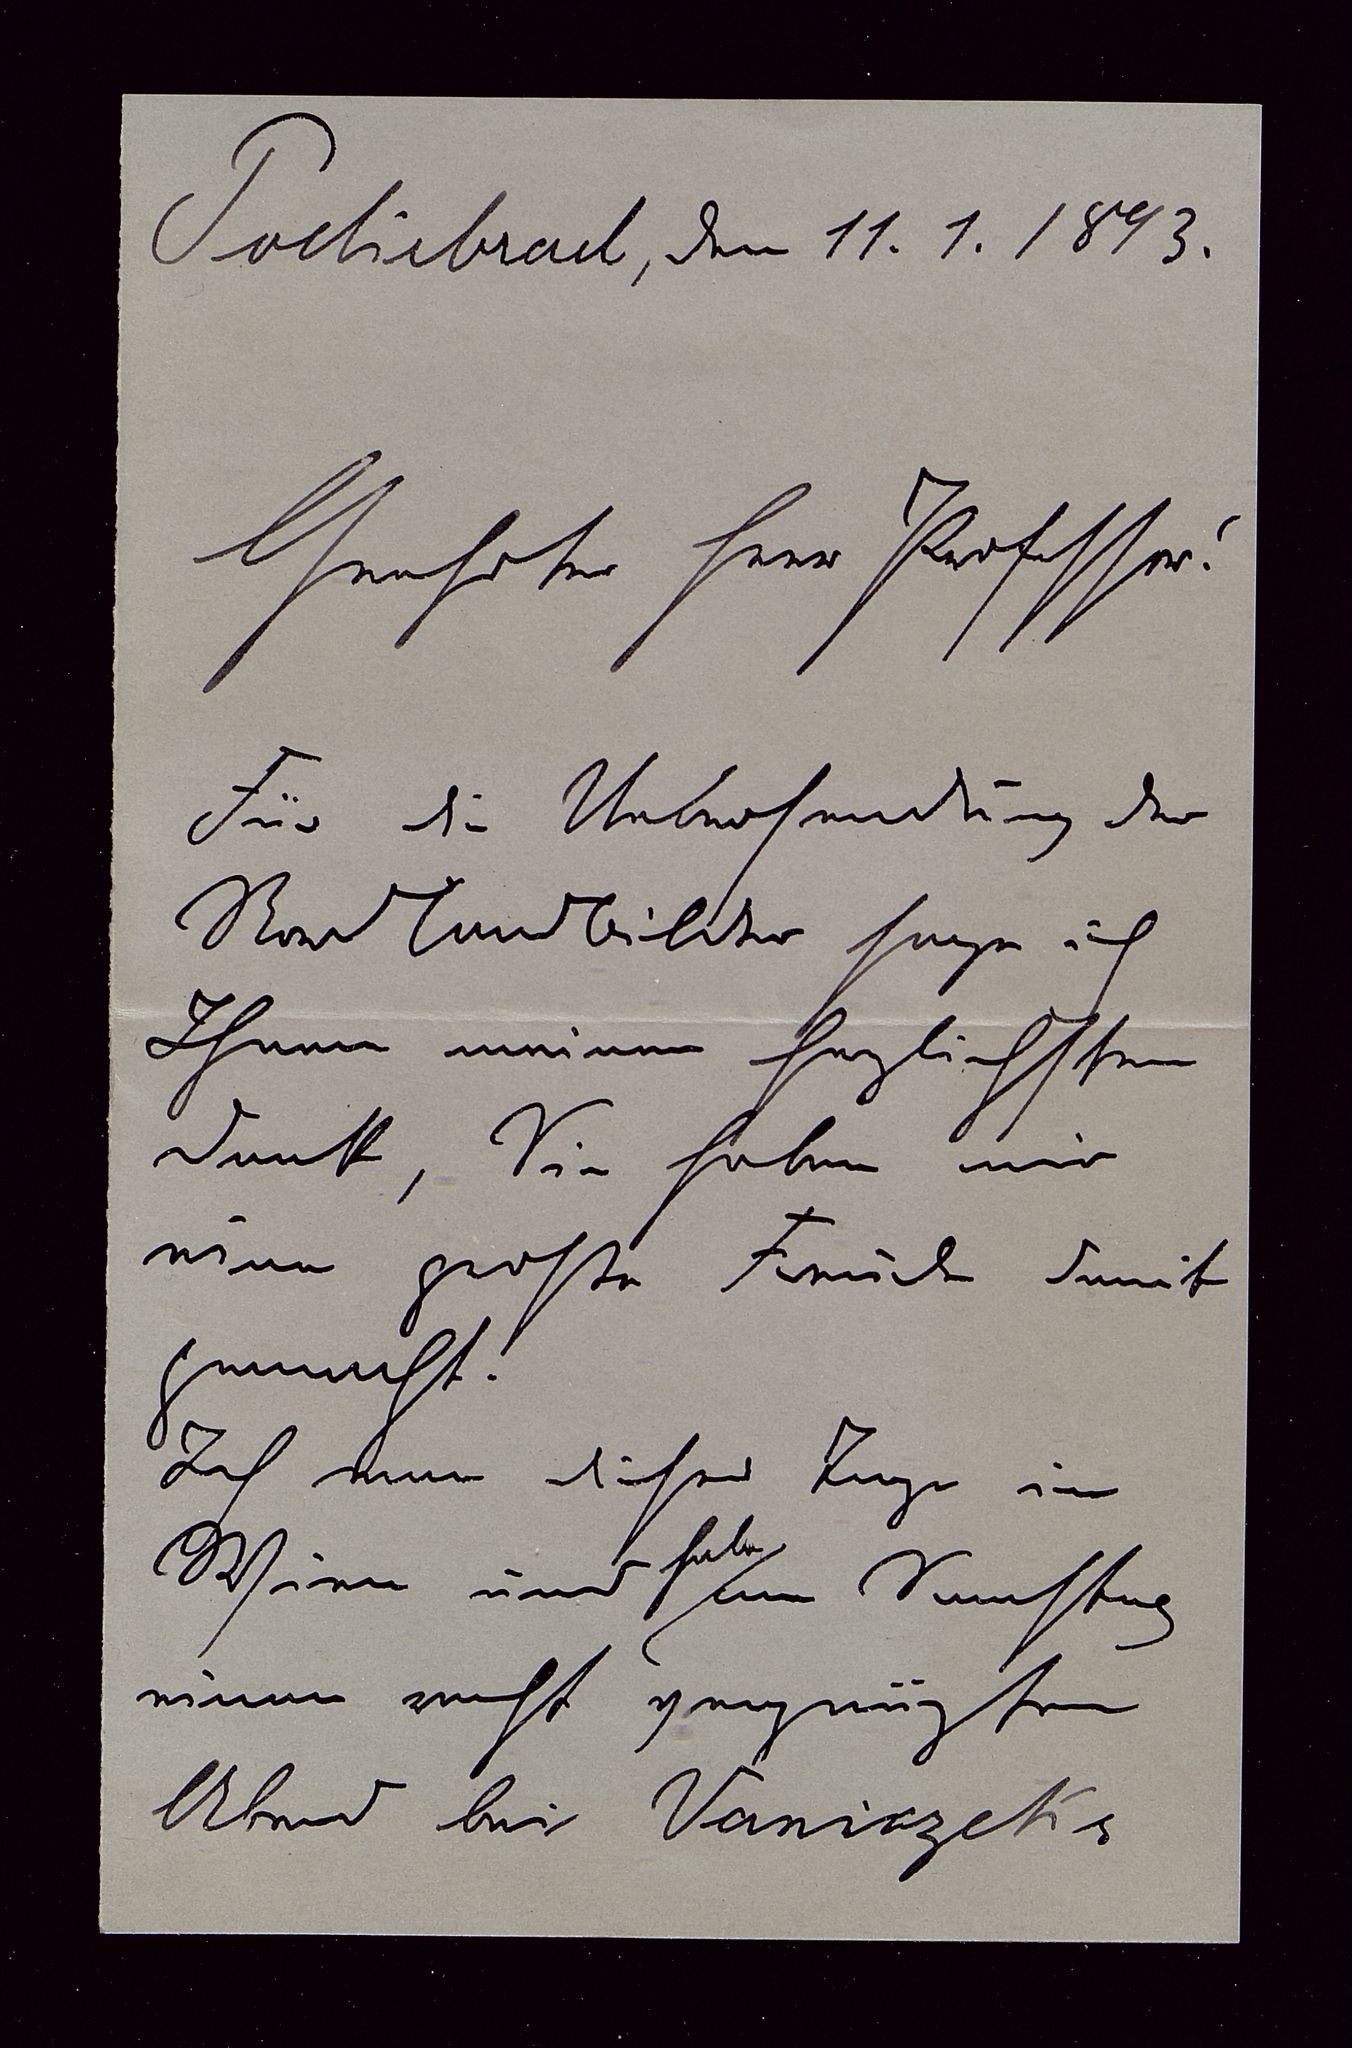 Podiebrad, den 11. 1. 1893.
Geehrter Herr Professor!
Für die Uebersendung der
Nordlandbilder sage ich
Ihnen meinen herzlichsten
Dank, Sie haben mir
eine große Freude damit
gemacht!
Ich war dieser Tage in
Wien und habe am Samstag
einen recht vergnügten
Abend bei Vaniczeks